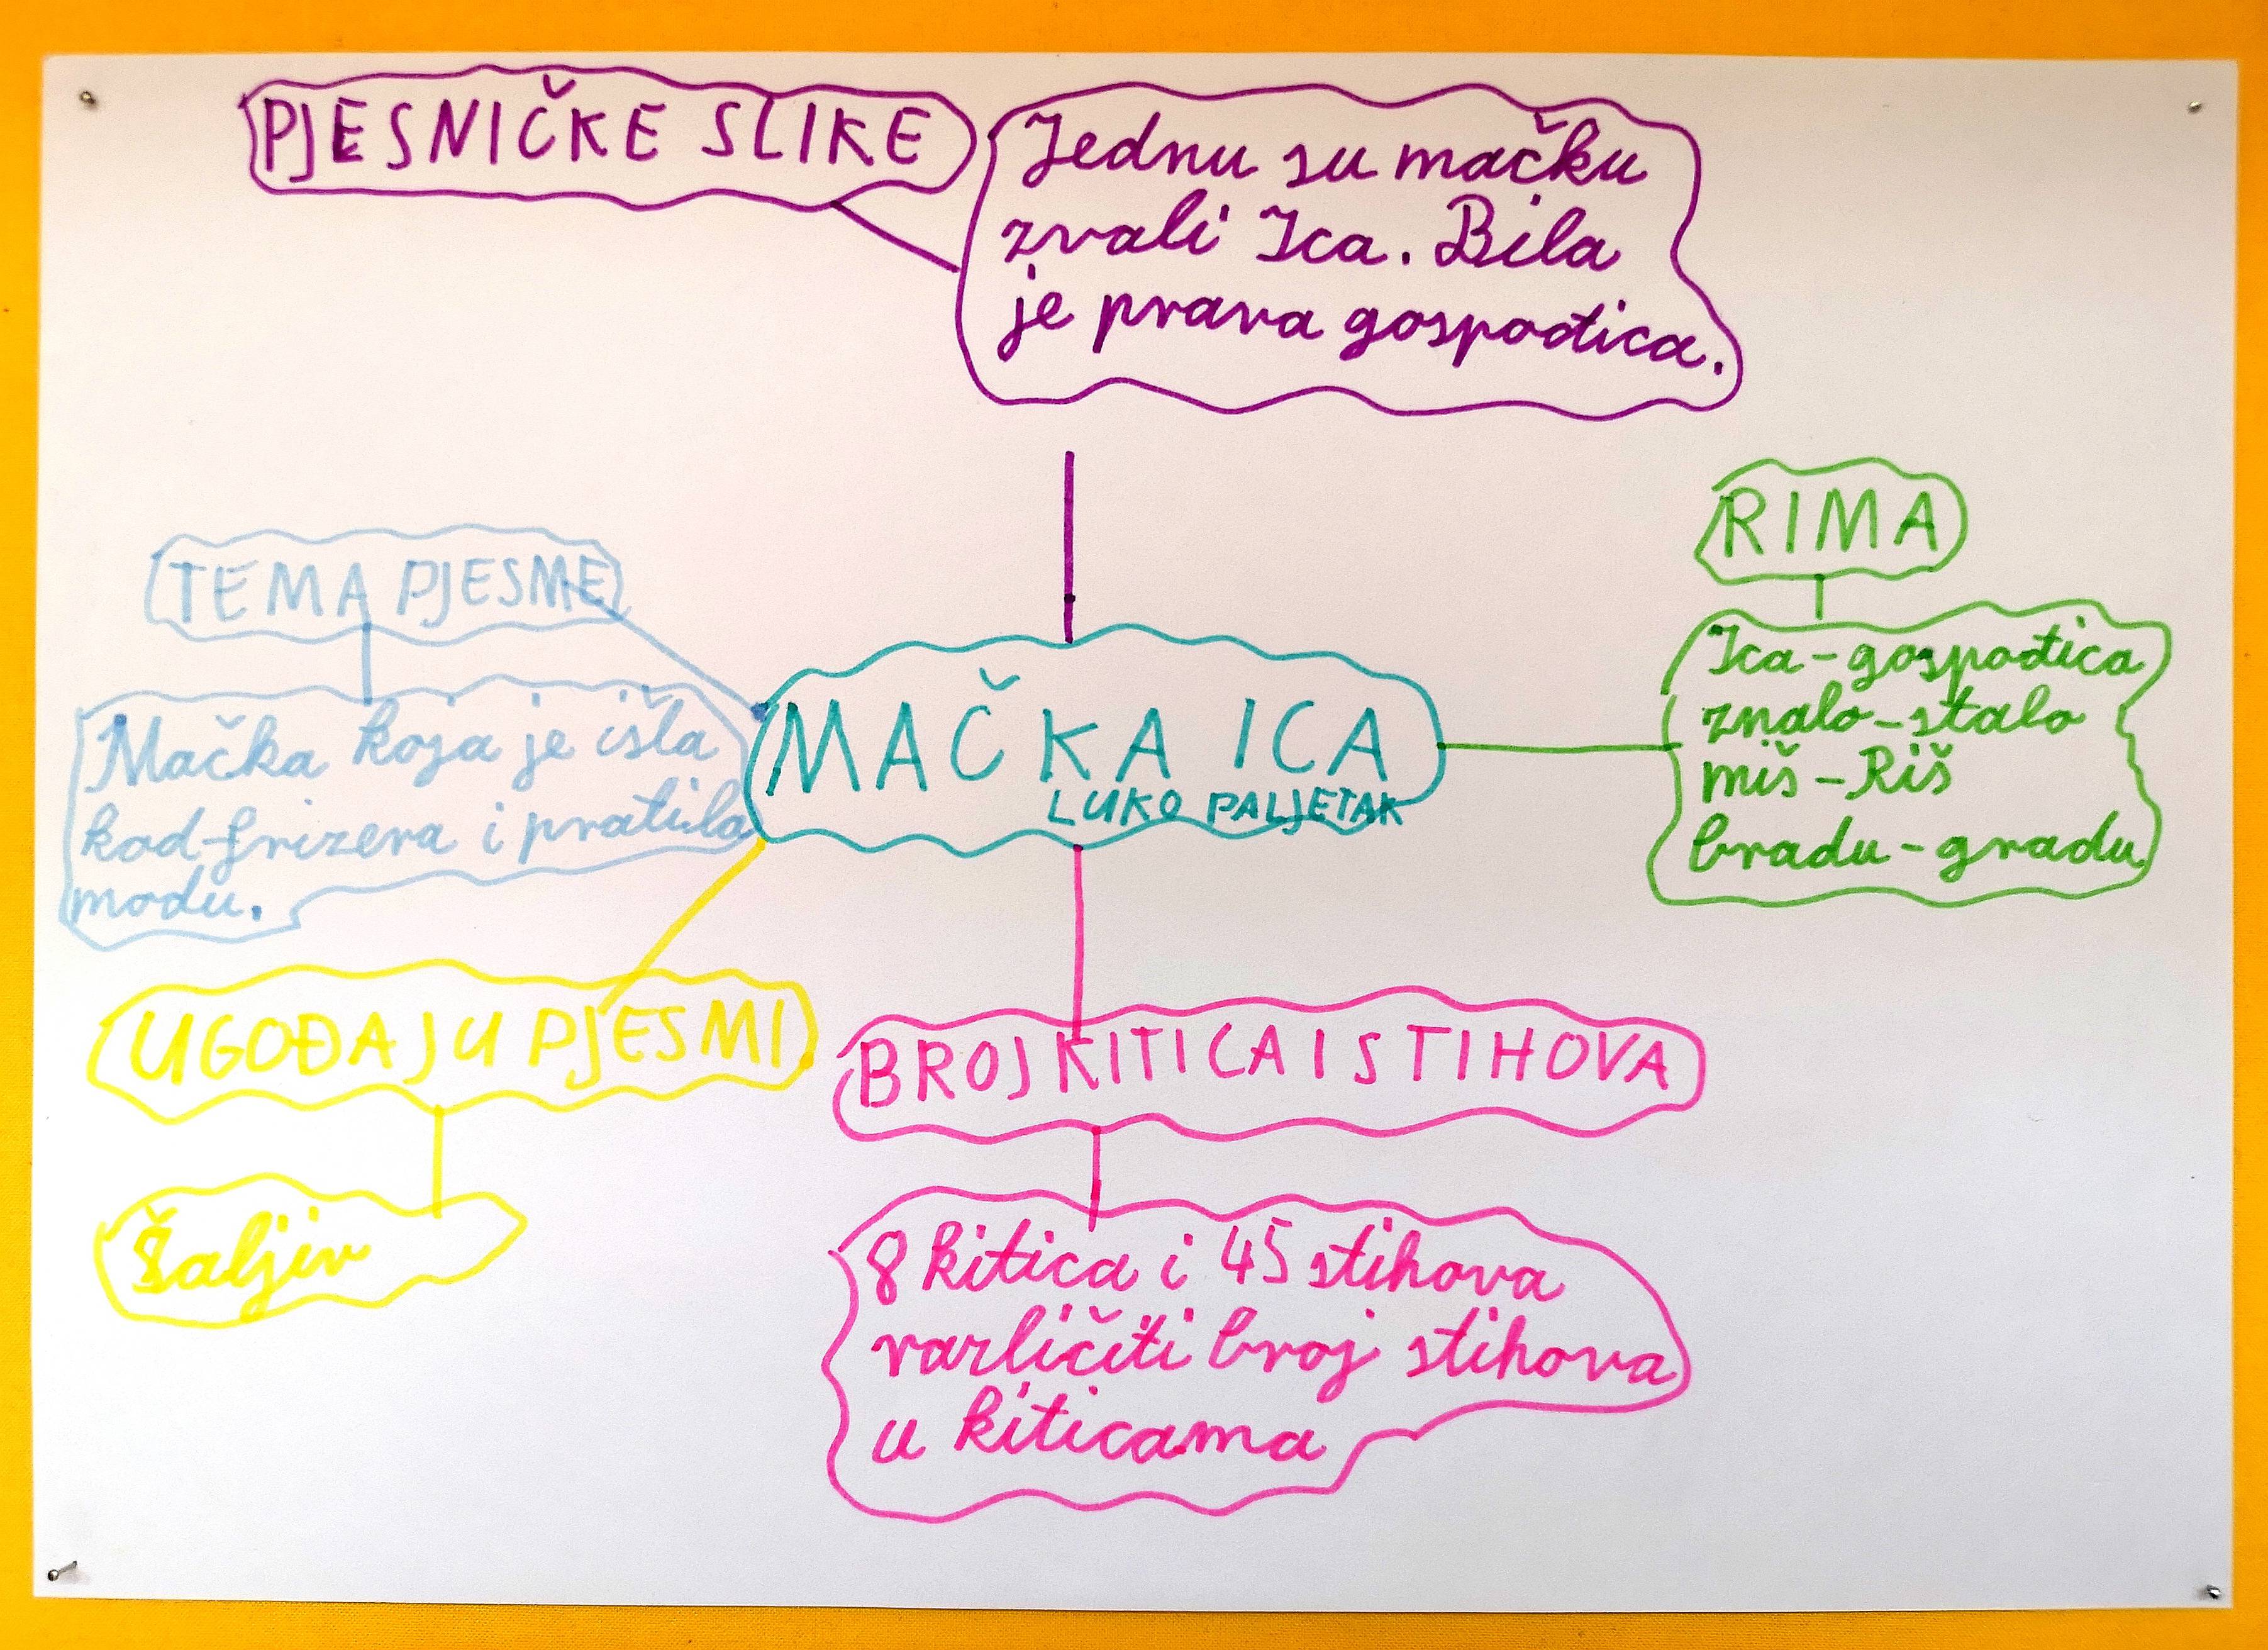 PJESNIČKE SLIKE
Jednu su mačku
zvali Ica. Bila
je prava gospođica.
TEMA PJESME
Mačka koja je išla
kod frizera i pratila
modu.
MAČKA ICA
LUKO PALJETAK
RIMA
Ica-gospođica
znalo-stalo
miš-Riš
bradu-gradu
UGOĐAJ U PJESMI
Šaljiv
BROJ KITICA I STIHOVA
8 kitica i 45 stihova
različiti broj stihova
u kiticama